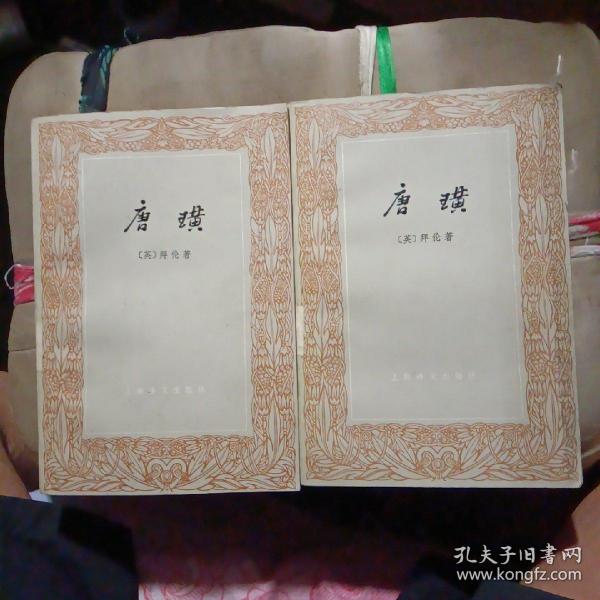 唐璜
〔英〕拜伦著
上海译文出版社
唐璜
〔英〕拜伦著
上海译文出版社
孔夫子旧书网
www.kongfz.com